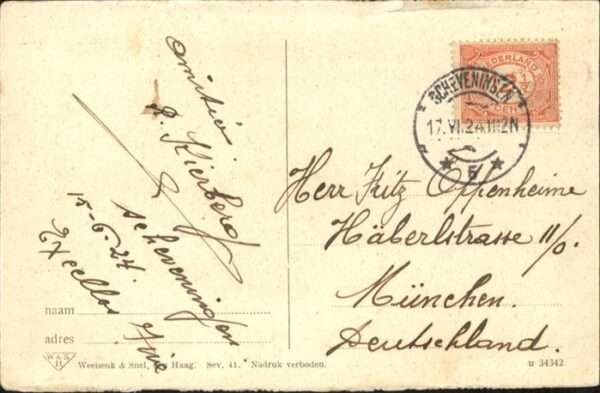 amitié
Scheveningen
15-6-24
NEDERLAND
SCHEVENINGEN
17.VI.24.11-12N
5
Herr Fritz Oppenheime
Häberlstrasse 11/0.
München.
Deutschland.
naam
adres
Weenenk & Snel, Haag. Sev. 41. Nadruk verboden.
u 34342